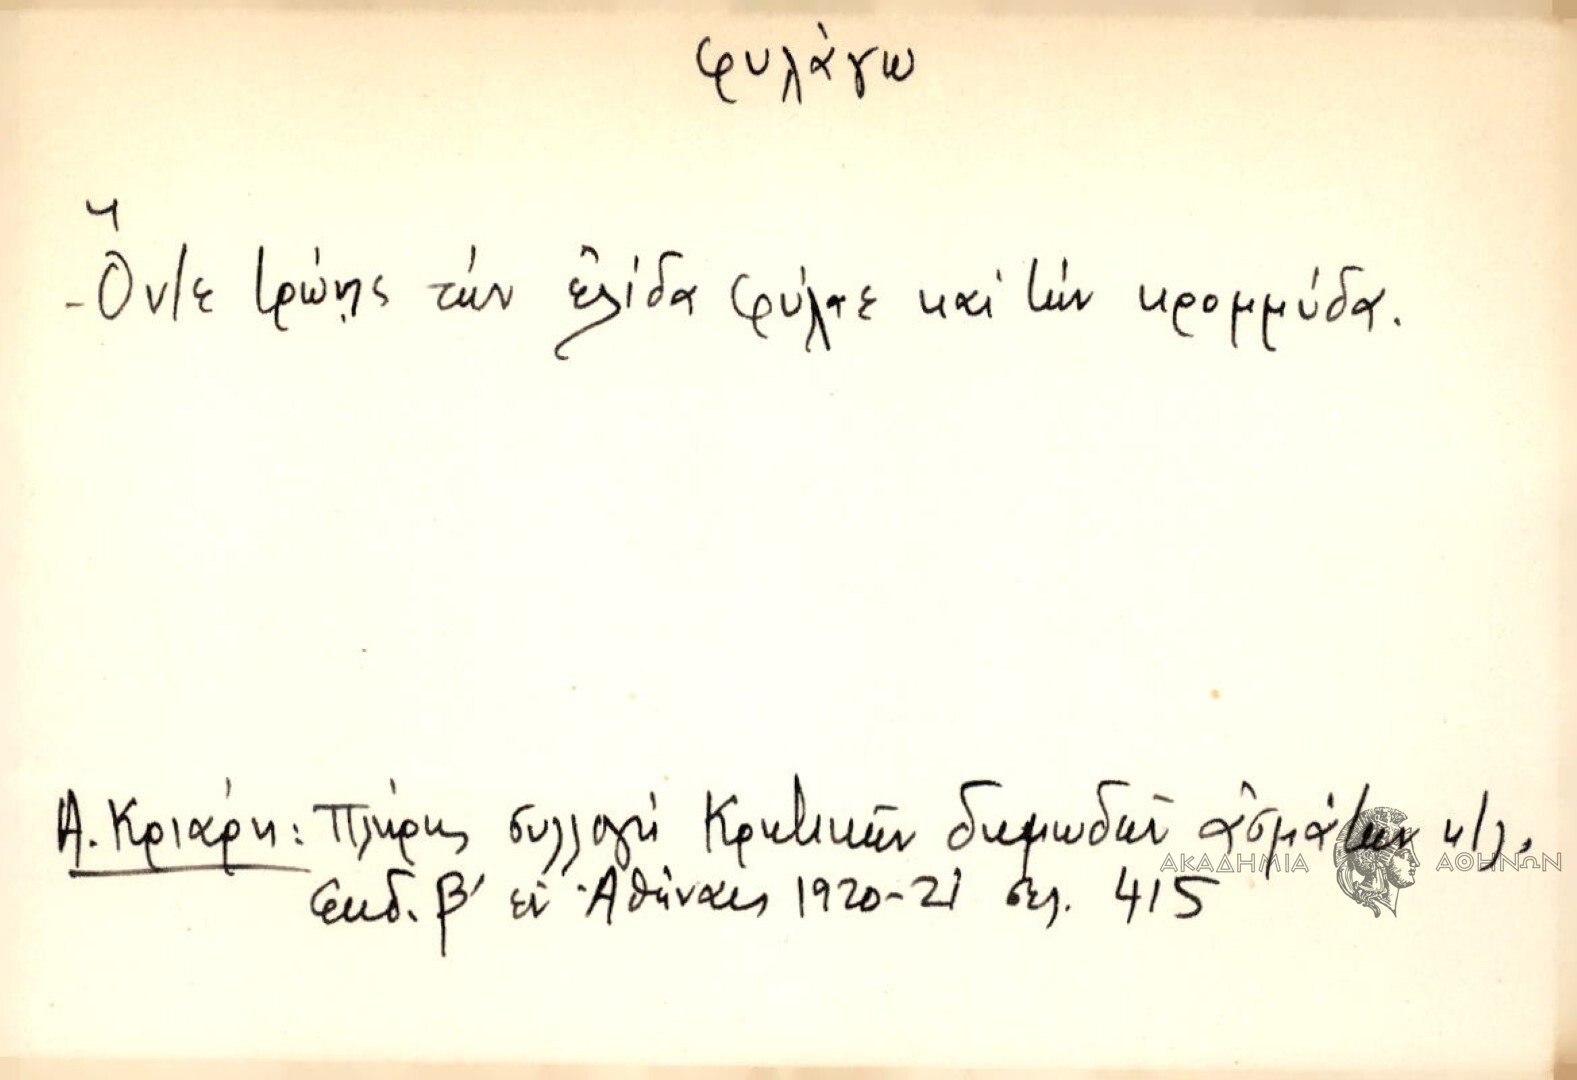 φυλάγω
- Ὅντε τρώῃς τὴν ἐλίδα φύλαε καὶ τὴν κρομμύδα.
Α. Κριάρη: Πλήρης συλλογή Κρητικῶν δημωδῶν ᾀσμάτων κτλ.
ΑΚΑΔΗΜΙΑ ΑΘΗΝΩΝ
ἐκδ. β' ἐν Ἀθήναις 1920-21 σελ. 415